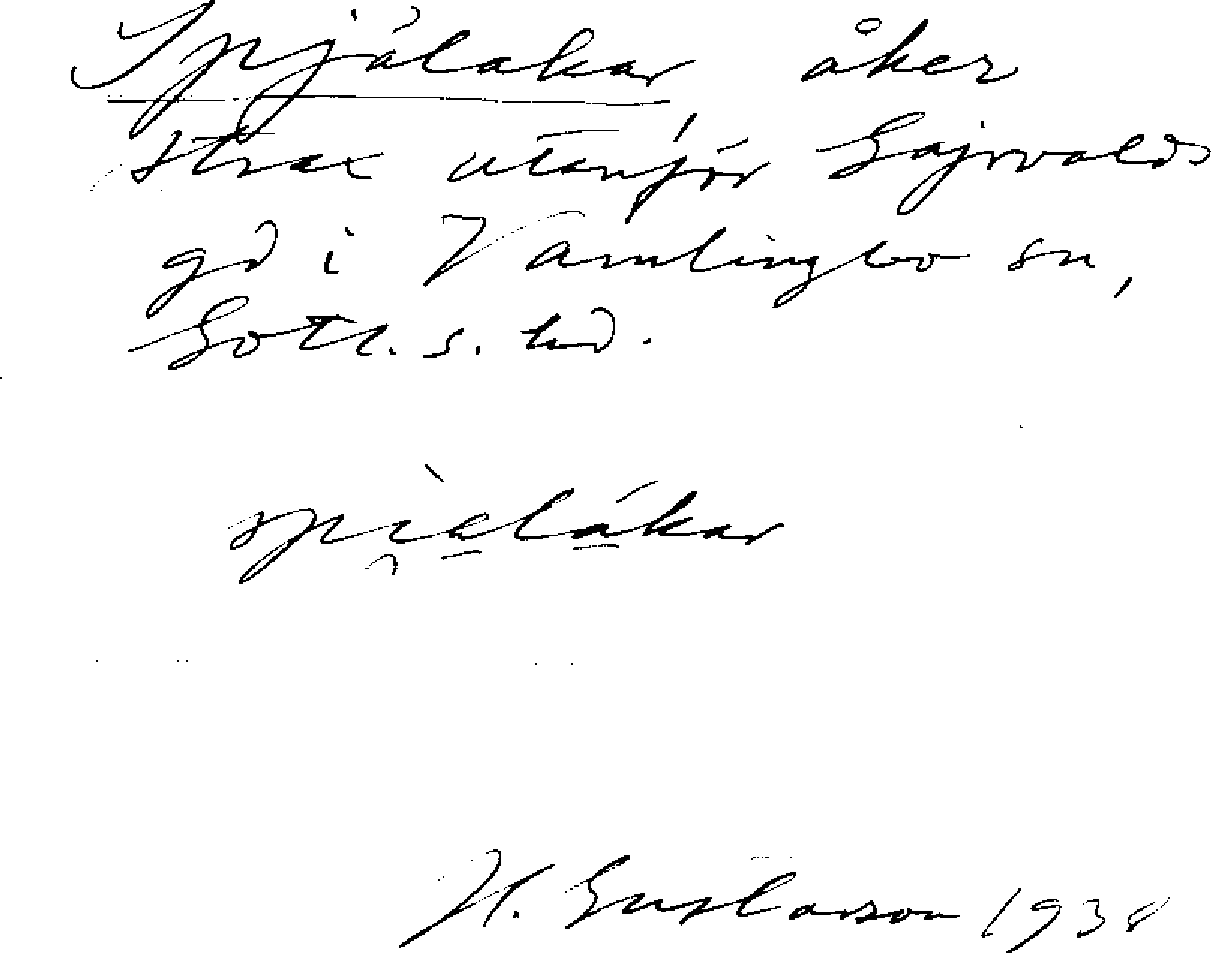 Spjålakar, åker
strax utanför Gajrvalds
gd i Vamlingbo sn,
Gotl. s. hd.
spi̯ḛlákar
H. Gustavson 1938